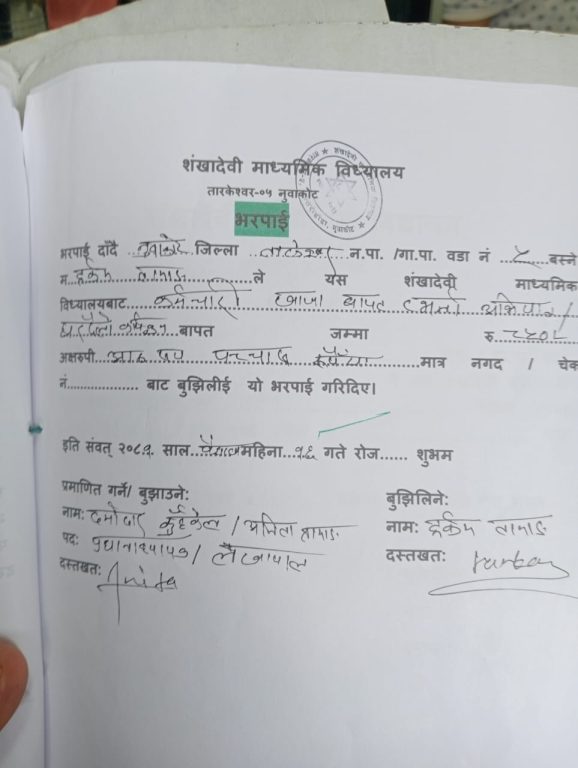 शंखादेवी माध्यमिक विध्यालय
तारकेश्वर-०५ नुवाकोट
भरपाई
भरपाई दाँदै नुवाकोट जिल्ला तारकेश्वर न.पा. /गा.पा. वडा नं ५ बस्ने
म ले येस शंखादेवी माध्यमिक
विध्यालयबाट कर्मचारी खाजा बापत भर्ना अभियान /
बापत जम्मा रु ८५०।-
अक्षरुपी आठ सय पच्चास रुपैंया मात्र नगद / चेक
नं.................. बाट बुझिलीई यो भरपाई गरिदिए।
इति संवत् २०८१ साल बैशाख महिना १६ गते रोज...... शुभम
प्रमाणित गर्ने/ बुझाउने:
नामः दमोदर / अनिता तामाङ
पदः प्रधानाध्यापक / लेखापाल
दस्तखतः Anita
बुझिलिने:
नामः तामाङ
दस्तखतः